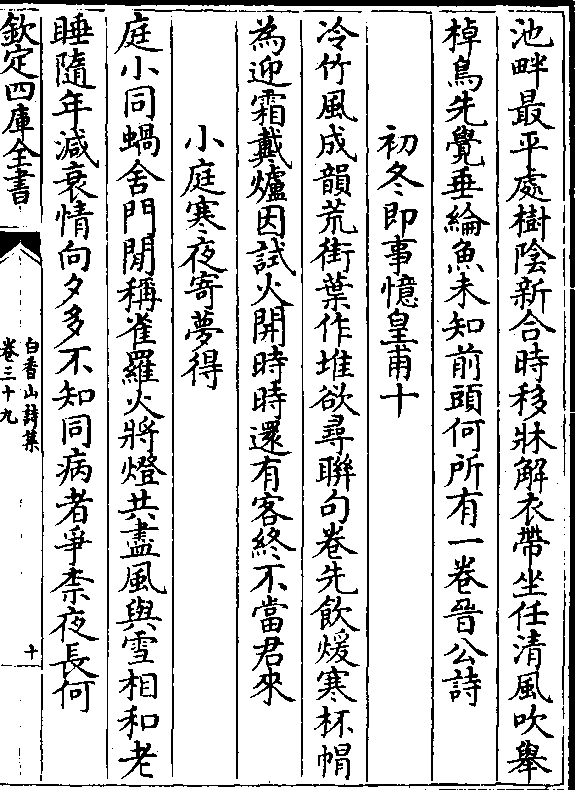 池畔最平處樹陰新合時移牀解衣帶坐任清風吹舉
棹鳥先覺垂綸魚未知前頭何所有一卷晉公詩
初冬即事憶皇甫十
冷竹風成韻荒街葉作堆欲尋聯句卷先飲煖寒杯帽
為迎霜戴爐因試火開時時還有客終不當君來
小庭寒夜寄夢得
庭小同蝸舍門閒稱雀羅火將燈共盡風與雪相和老
睡隨年減衰情向夕多不知同病者爭柰夜長何
欽定四庫全書
白香山詩集
卷三十九
十